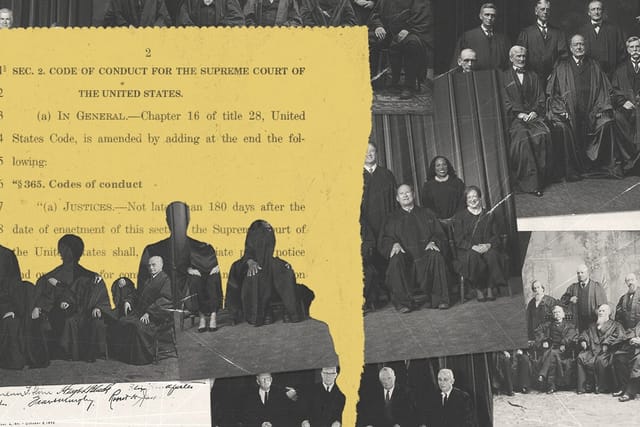 2
SEC. 2. CODE OF CONDUCT FOR THE SUPREME COURT OF
2 THE UNITED STATES.
3 (a) IN GENERAL.—Chapter 16 of title 28, United
4 States Code, is amended by adding at the end the fol-
5 lowing:
6 “§ 365. Codes of conduct
7 “(a) JUSTICES.—Not later than 180 days after the
8 date of enactment of this sec the Supreme Court of
the United States shall, notice
for